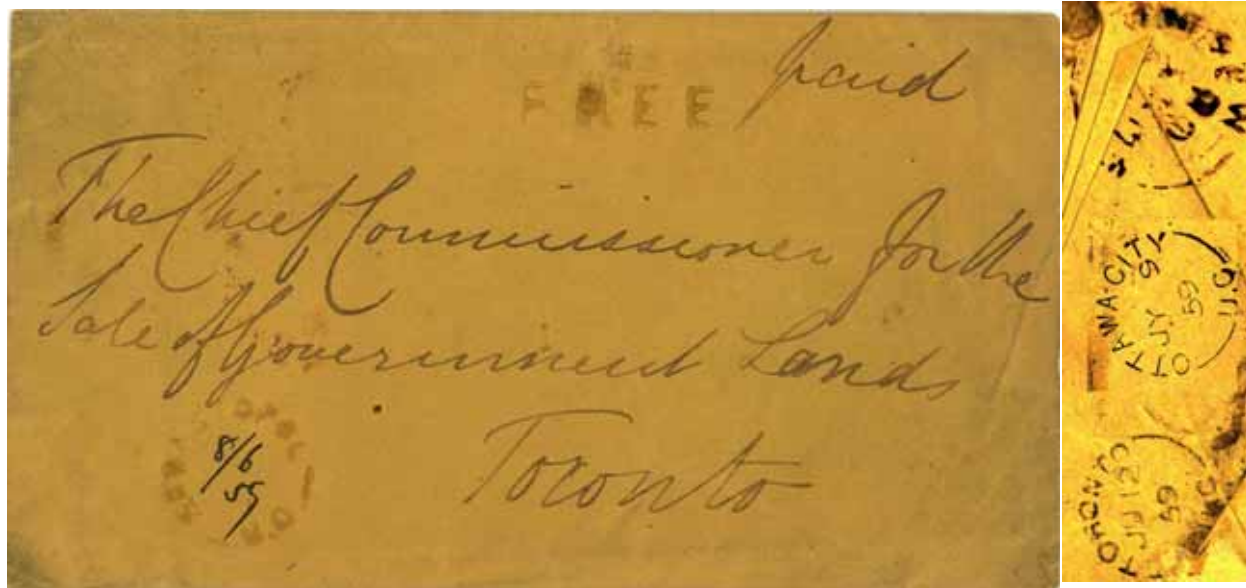 paid
FREE
The Chief Commissioner for the
Sale of Government Lands
Toronto
8/6
59
OTTAWA·CITY
U.C.
JY
59
TORONTO
59